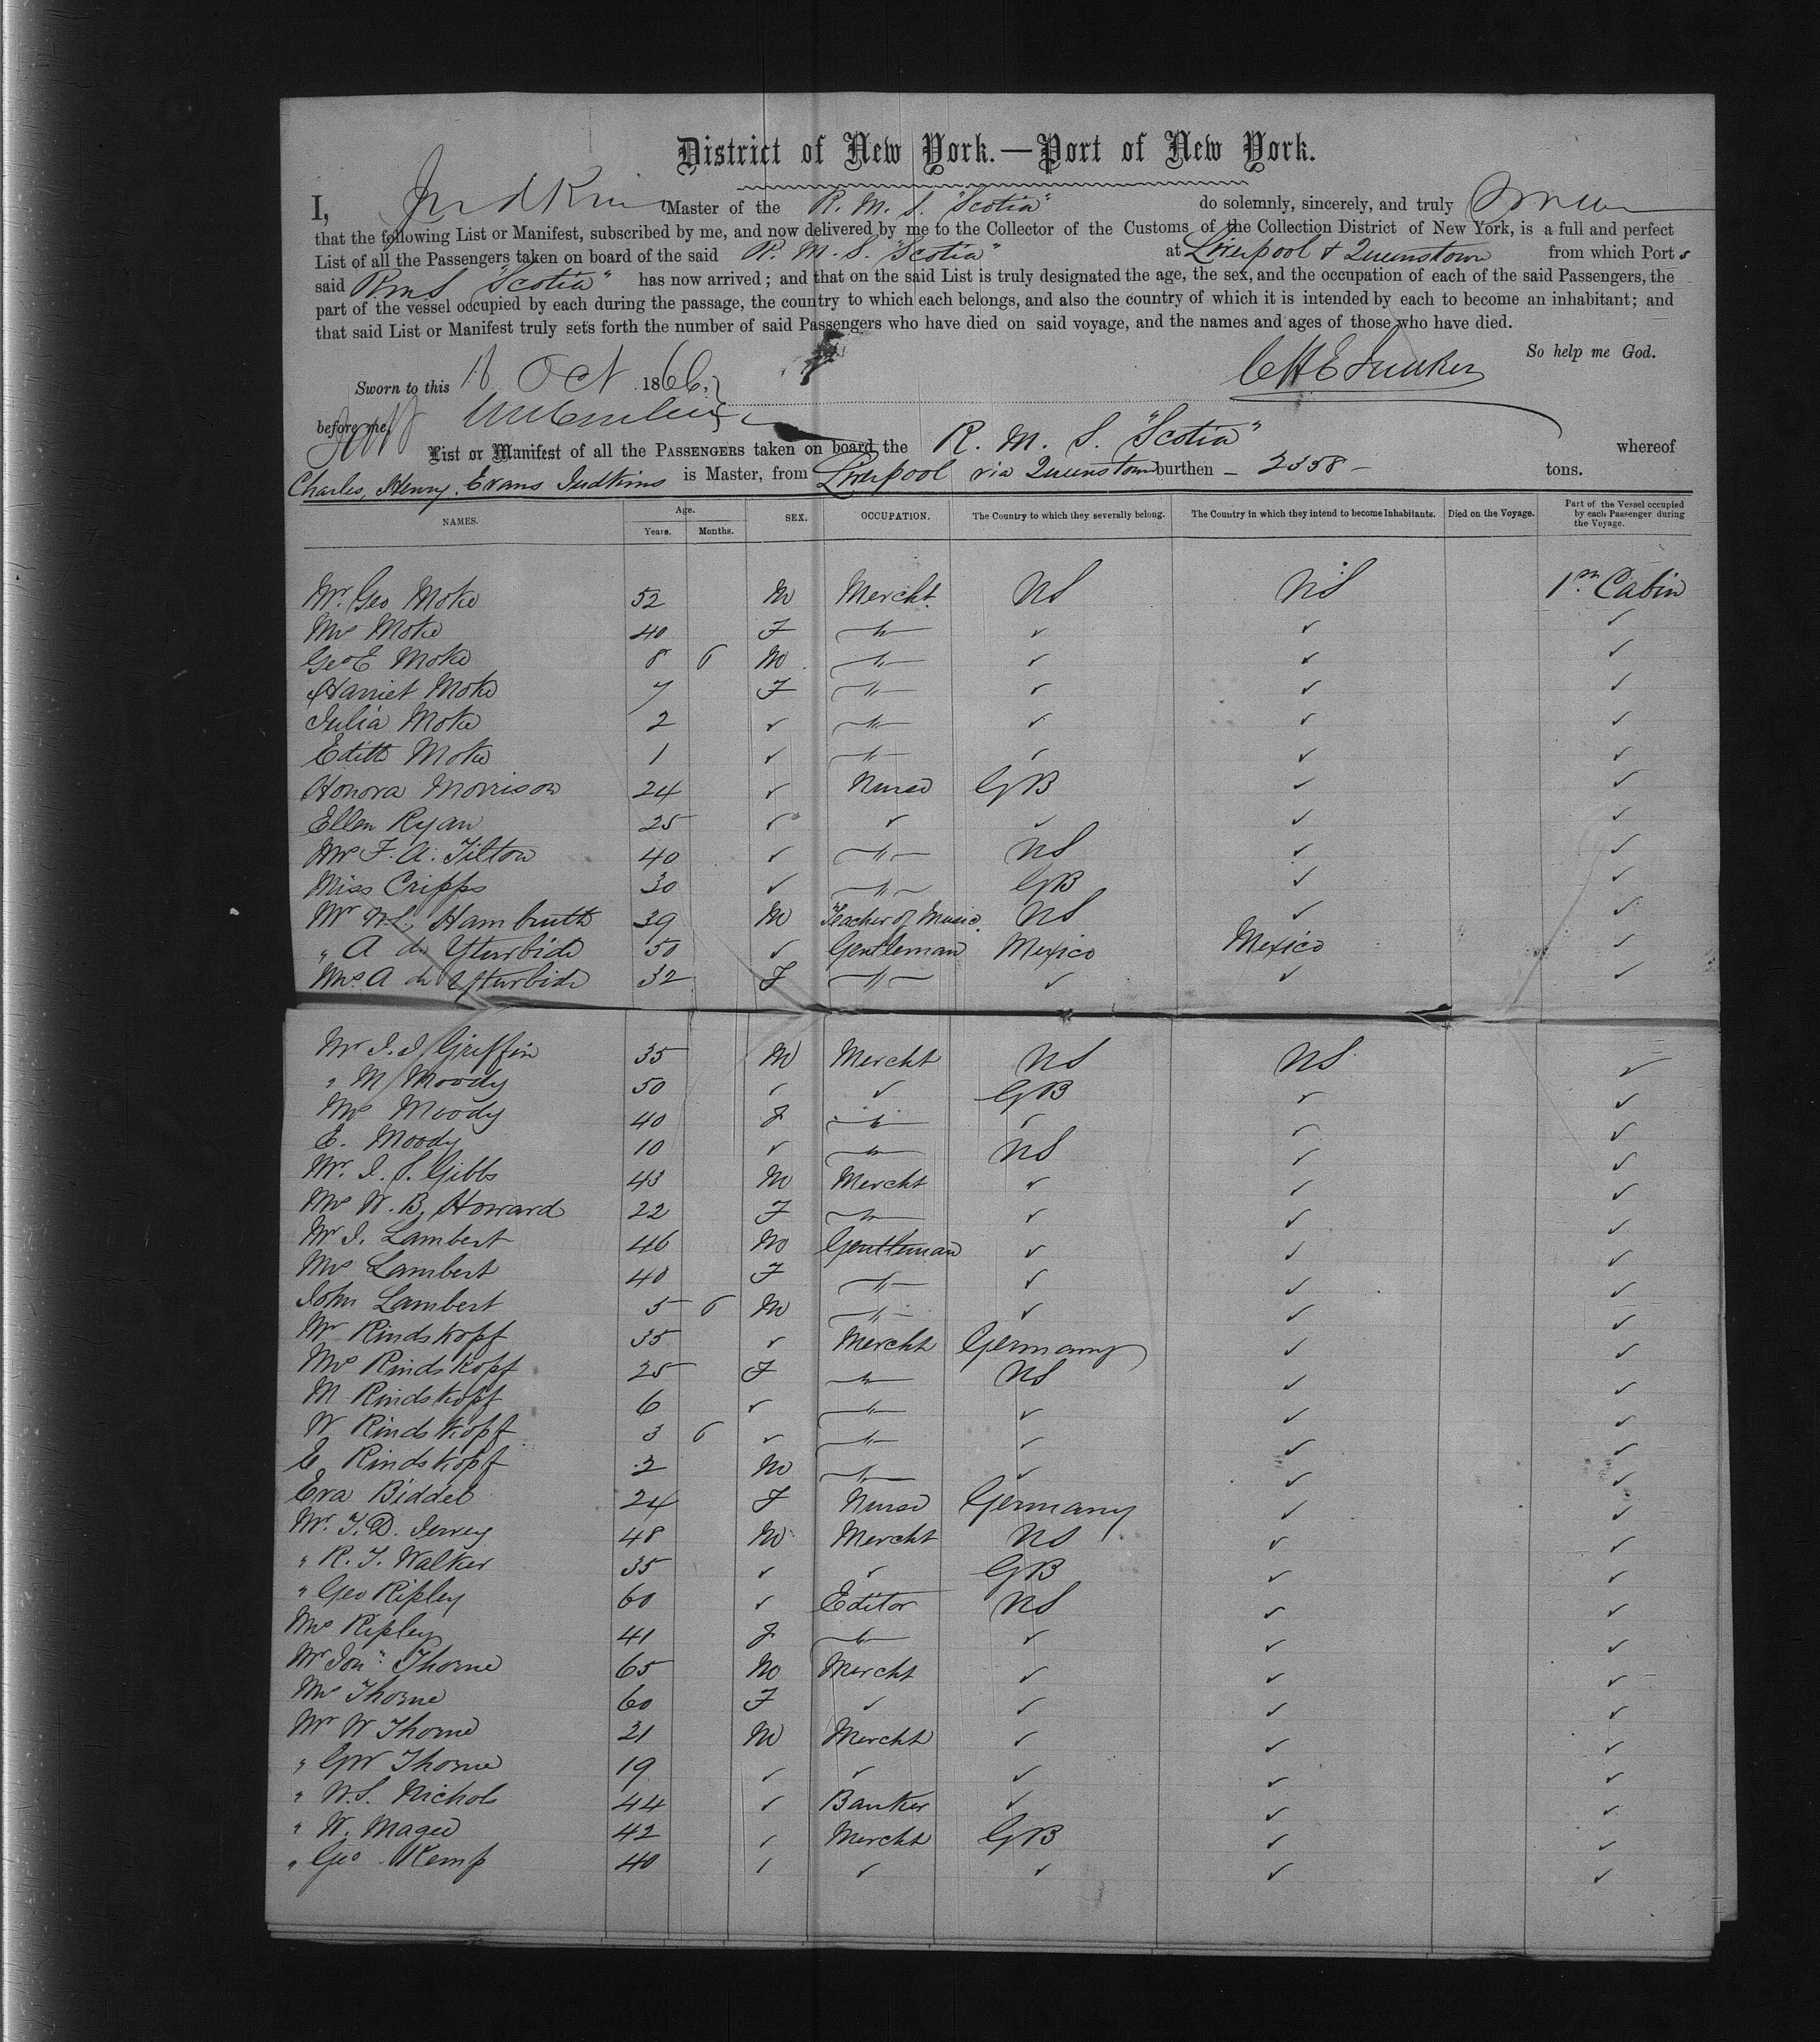 District of New York.—Port of New York.
I, Judkins Master of the R. M. S. "Scotia" do solemnly, sincerely, and truly swear
that the following List or Manifest, subscribed by me, and now delivered by me to the Collector of the Customs of the Collection District of New York, is a full and perfect
List of all the Passengers taken on board of the said R. M. S. "Scotia" at Liverpool & Queenstown from which Ports
said RMS "Scotia" has now arrived; and that on the said List is truly designated the age, the sex, and the occupation of each of the said Passengers, the
part of the vessel occupied by each during the passage, the country to which each belongs, and also the country of which it is intended by each to become an inhabitant; and
that said List or Manifest truly sets forth the number of said Passengers who have died on said voyage, and the names and ages of those who have died.
So help me God.
Sworn to this 18 Oct 1866.
CHE Judkins
before me,
List or Manifest of all the PASSENGERS taken on board the R. M. S. "Scotia" whereof
Charles, Henry, Evans Judkins is Master, from Liverpool via Queenstown burthen – 2358 – tons.
NAMES. Age. Years. Months. SEX. OCCUPATION. The Country to which they severally belong. The Country in which they intend to become Inhabitants. Died on the Voyage. Part of the Vessel occupied by each Passenger during the Voyage.
Mr. Geo Moke 52 M Mercht. US US 1st Cabin
Mrs Moke 40 F –"– ✓ ✓ ✓
Geo E Moke 8 6 M –"– ✓ ✓ ✓
Harriet Moke 7 F –"– ✓ ✓ ✓
Julia Moke 2 ✓ –"– ✓ ✓ ✓
Edith Moke 1 ✓ –"– ✓ ✓ ✓
Honora Morrison 24 ✓ Nurse GB ✓ ✓
Ellen Ryan 25 ✓ ✓ ✓ ✓ ✓
Mrs F. A. Tilton 40 ✓ –"– US ✓ ✓
Miss Cripps 30 ✓ –"– GB ✓ ✓
Mr Hambruth 39 M Teacher of Music. US ✓ ✓
" A de Yturbide 50 ✓ Gentleman Mexico Mexico ✓
Mrs A de Yturbide 32 F –"– ✓ ✓ ✓
Mr J. J Griffin 35 M Mercht US US ✓
" M Moody 50 ✓ ✓ GB ✓ ✓
Mrs Moody 40 F –"– ✓ ✓ ✓
E. Moody 10 ✓ –"– US ✓ ✓
Mr. J. S. Gibbs 43 M Mercht ✓ ✓ ✓
Mrs W. B. Howard 22 F –"– ✓ ✓ ✓
Mr J. Lambert 46 M Gentleman ✓ ✓ ✓
Mrs Lambert 40 F –"– ✓ ✓ ✓
John Lambert 5 6 M –"– ✓ ✓ ✓
Mr Rindskopf 35 ✓ Mercht Germany ✓ ✓
Mrs Rindskopf 25 F –"– US ✓ ✓
M Rindskopf 6 ✓ –"– ✓ ✓ ✓
W Rindskopf 3 6 ✓ –"– ✓ ✓ ✓
E Rindskopf 2 M –"– ✓ ✓ ✓
Eva Biddel 24 F Nurse Germany ✓ ✓
Mr. T. D. Jervey 48 M Mercht US ✓ ✓
" R. T. Walker 35 ✓ ✓ GB ✓ ✓
" Geo Ripley 60 ✓ Editor US ✓ ✓
Mrs Ripley 41 F –"– ✓ ✓ ✓
Mr Jon" Thorne 65 M Mercht ✓ ✓ ✓
Mrs Thorne 60 F ✓ ✓ ✓ ✓
Mr W Thorne 21 M Mercht ✓ ✓ ✓
" GW Thorne 19 ✓ ✓ ✓ ✓ ✓
" W. S. Nichols 44 ✓ Banker ✓ ✓ ✓
" W. Magee 42 ✓ Mercht GB ✓ ✓
" Geo Kemp 40 ✓ ✓ ✓ ✓ ✓